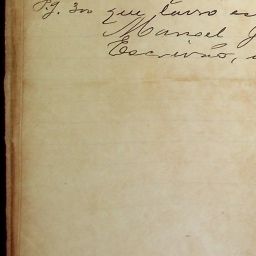 Pg. 300 que lavro es
Manoel J
Escrivão,